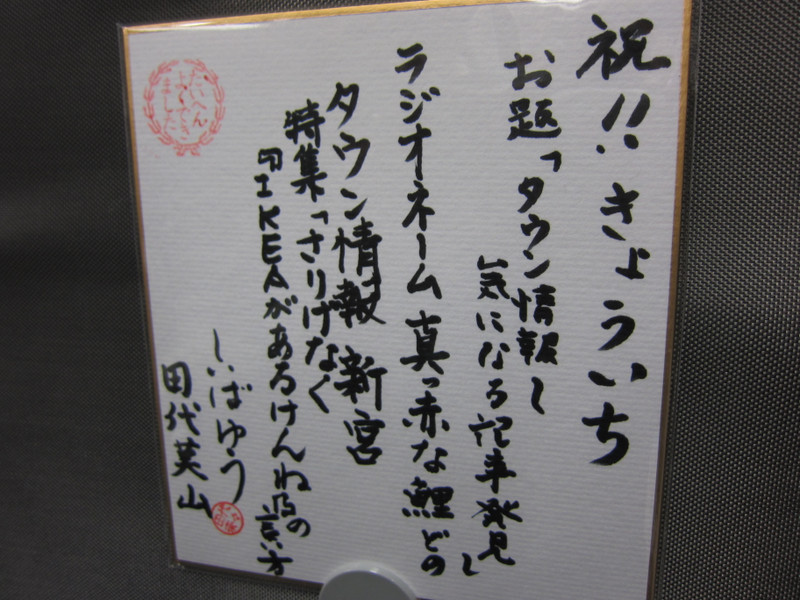 祝!! きょういち
お題「タウン情報〜
気になる記事発見」
ラジオネーム 真っ赤な鯉どの
タウン情報 新宮
特集「さりげなく
『IKEAがあるけんね』の言い方
しいばゆう
田代英山
たいへん
よくでき
ました